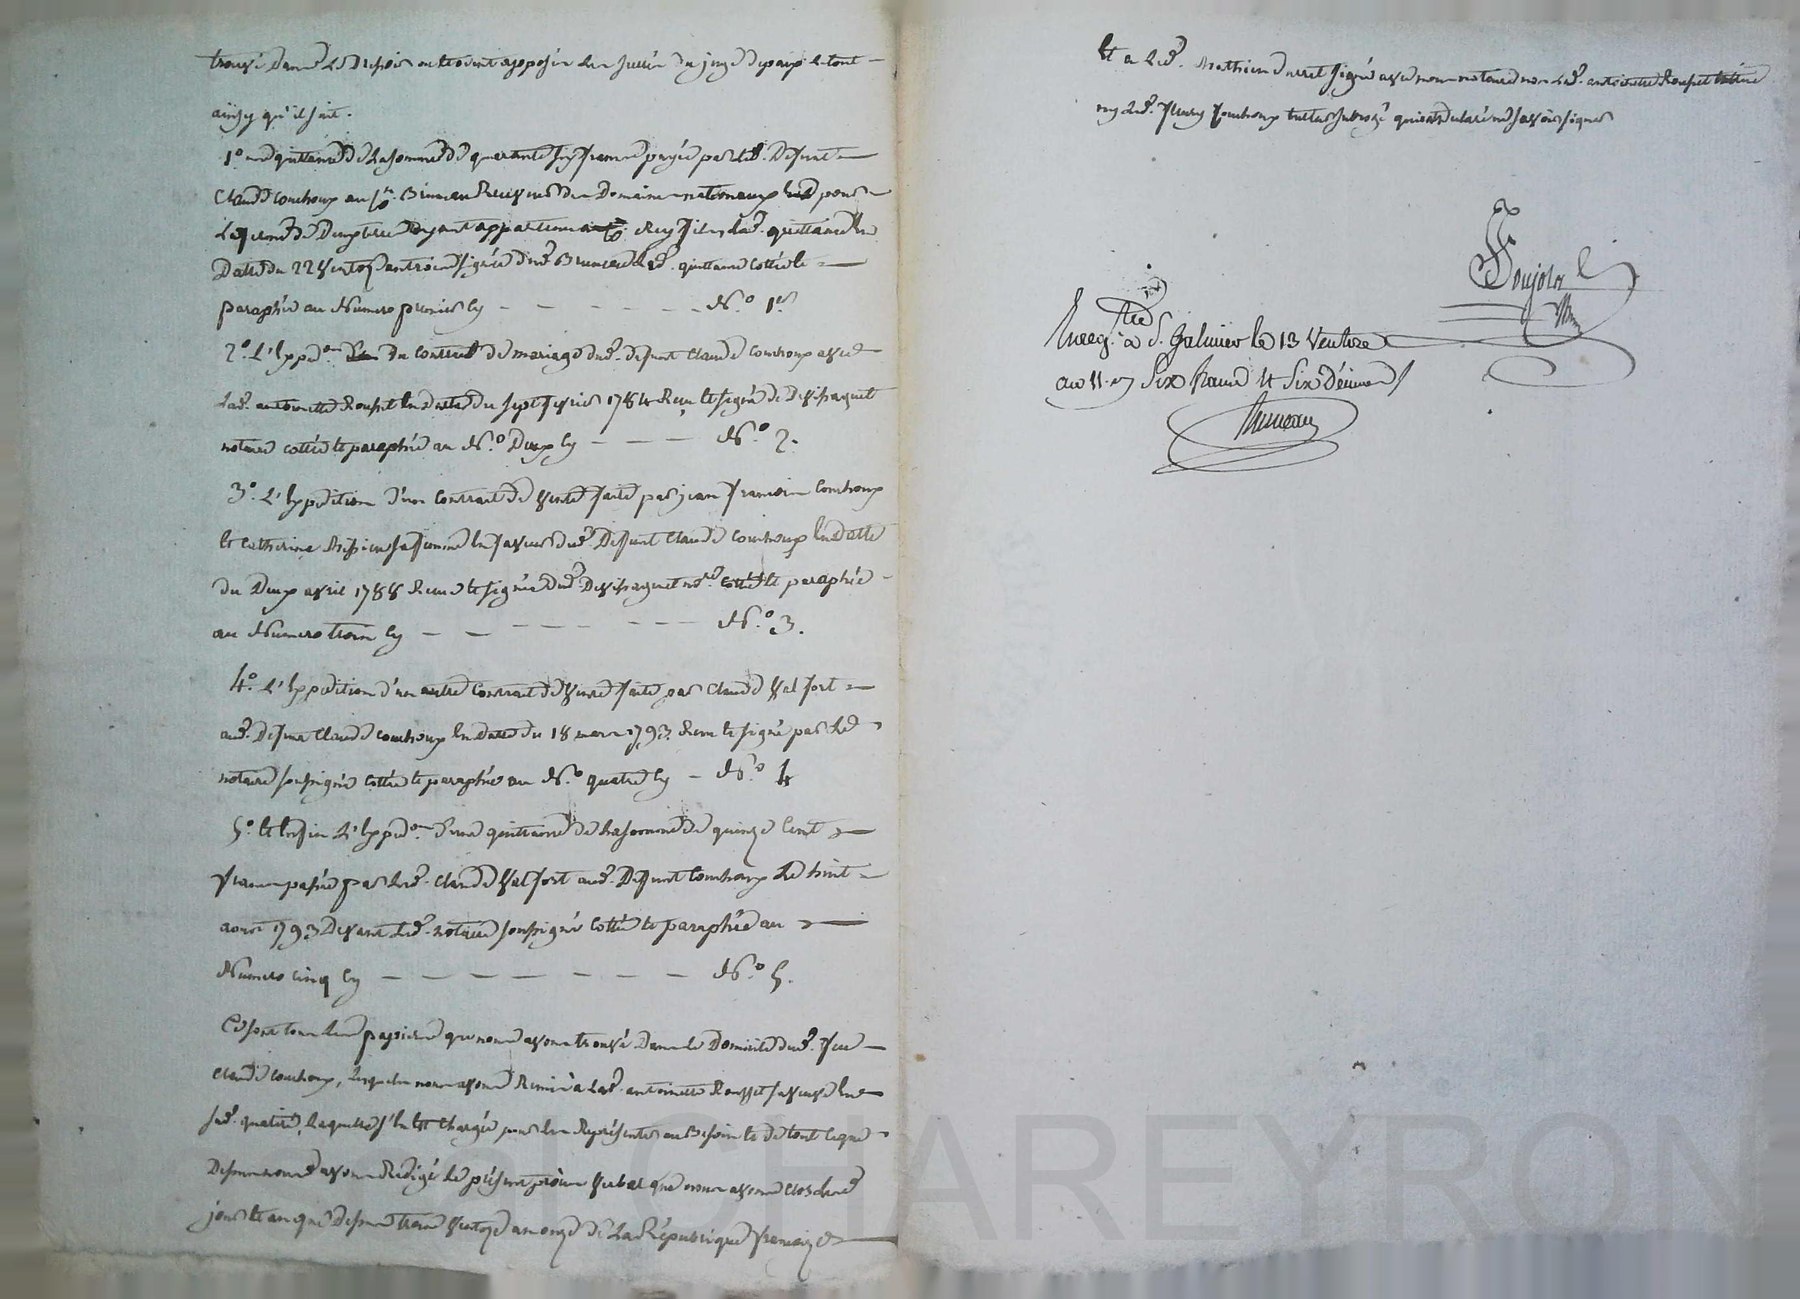 trouvé dans le Dressoir ou étoient apposés les scellés du juge de paix le tout
ainsy qu'il suit.
1.o une quittance de la somme de quarante six francs payée par led. Defunt
Claude Couchoux au S.r Bruneau Receveur des Domaines nationaux pour
ayant appartenu quittance En
Datte du 22 Ventose an trois signée dud. Bruneau lad. quittance cottée et
paraphée au Numero premier Cy — — — — — N.o 1.er
2.o L'Expéd.on du Contrat de mariage dud. defunt Claude Couchoux avec
lad. antoinette Rousset En datte du sept fevrier 1784 Recu et signé
notaire cottée et paraphée au N.o Deux Cy — — — N.o 2.
3.o L'Expedition d'un Contrat de Vente faite par jean francois Couchoux
et Catherine sa femme En faveur dud. Defunt Claude Couchoux En datte
du Deux avril 1788 Recu et signée dud. no.re Cottée et paraphée
au Numero trois Cy — — — — — N.o 3.
4.o L'Expedition d'un autre Contrat de Vente faite par Claude Valfort
aud. Defunt Claude Couchoux En datte du 18 mars 1793 Recu et signé par le
notaire soussigné Cottée et paraphée au N.o quatre Cy — N.o 4
5.o et Enfin L'Expéd.on d'une quittance de la somme de quinze Cent
francs passée par led. Claude Valfort aud. Defunt Couchoux le huit
aoust 1793 Devant led. notaire soussigné Cottée et paraphée au
Numero Cinq Cy — — — — — — — N.o 5.
Ce sont tous les papiers que nous avons trouvé dans le Domicile dud. feu
Claude Couchoux, lesquels nous avons Remis à lad. antoinette Rousset sa veuve En
sad. qualité, laquelle s'en Est Chargée pour les Représenter au Besoin et de tout Ceque
Dessus nous avons Redigé le présent procès Verbal que nous avons Clos lesd.
jour et an que Dessus treize Ventose an onze de La République francaize
Et a led. Mathieu signé avec nous notaire non lad. antoinette Rousset
ny led. fleury Couchoux tuteur subrogé qui ont declaré ne savoir signer
Poujola
Enreg.é à S. Galmier le 13 Ventose
an 11. Six francs et Six Décimes
Bruneau
CHAREYRON